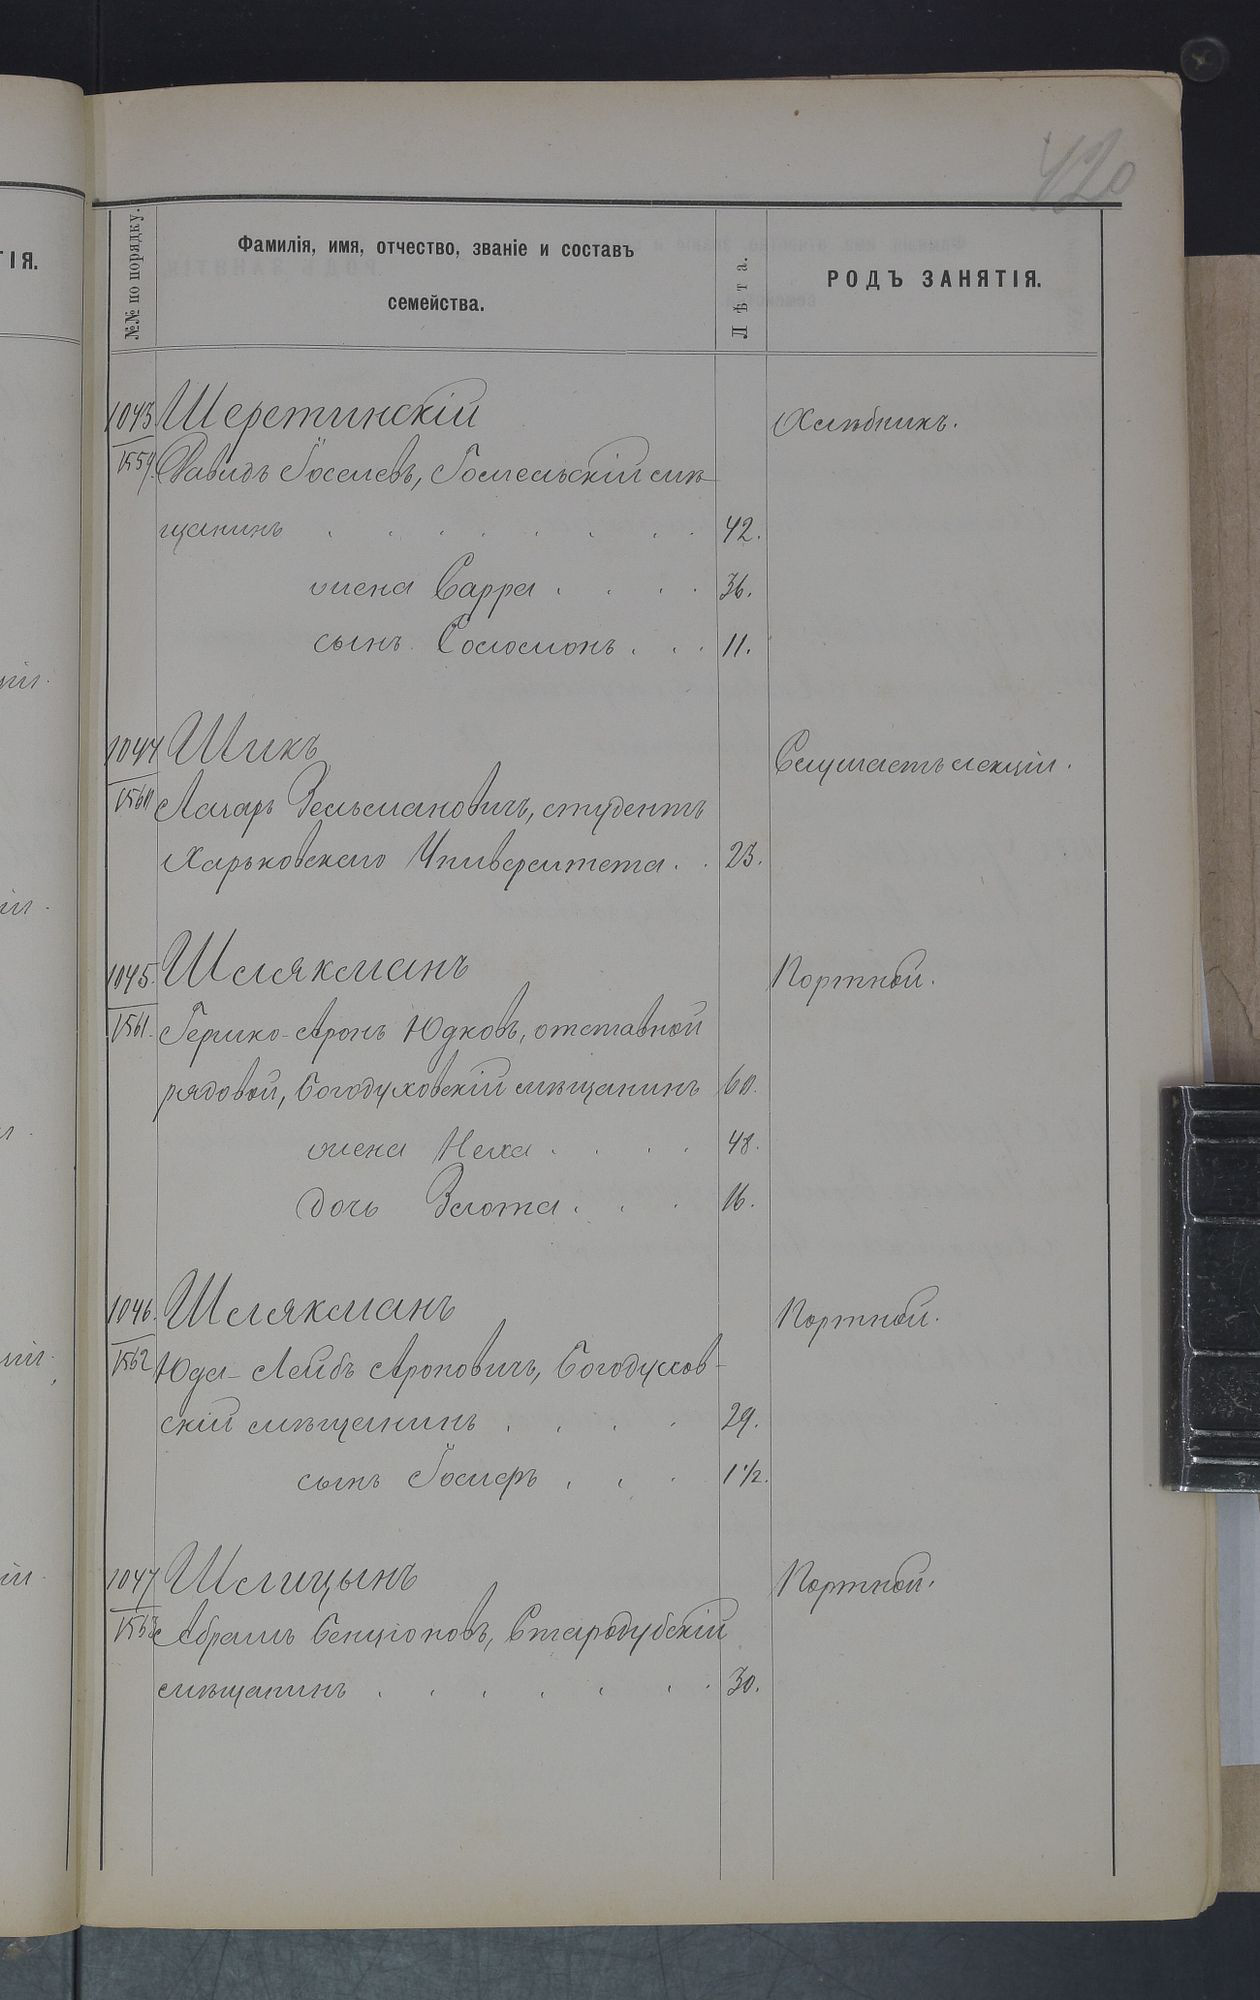 420
№№ по порядку.
Фамилія, имя, отчество, званіе и составъ
семейства.
Лѣта.
РОДЪ ЗАНЯТІЯ.
ТІЯ.
1043 Шеретинскій Хлѣбникъ.
1559. Давидъ Іоселевъ, Гомельскій мѣ-
щанинъ 42.
жена Сарра 36.
сынъ Соломонъ 11.
1044 Шикъ Слушаетъ лекціи.
1560 Лазарь Зельмановичъ, студентъ
Харьковскаго Университета 23.
1045. Шлякманъ Портной.
1561. Гершко-Аронъ Юдковъ, отставной
рядовой, Богодуховскій мѣщанинъ 60.
жена Неха 48.
дочь Злота 16.
1046. Шлякманъ Портной.
1562 Юда-Лейбъ Ароновичъ, Богодухов-
скій мѣщанинъ 29.
сынъ Іосифъ 1½.
1047 Шлицынъ Портной.
1563 Абрамъ Бенціоновъ, Стародубскій
мѣщанинъ 30.